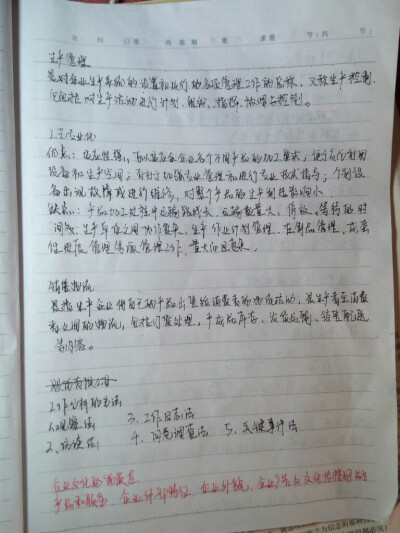 年 月 日 周 星期 第 课 第 节(共 节)
生产管理
是对企业生产系统的设置和运行的各项管理工作的总称,又称生产控制
它包括对生产活动进行计划、组织、指挥、协调与控制。
1.工艺专业化
优点:适应性强,可以适应企业各个不同产品的加工要求,便于充分利用
设备和生产空间;有利于加强专业管理和进行专业技术指导;个别设
备出现故障或进行维修,对整个产品的生产制造影响小
缺点:产品加工过程中运输路线长,运输数量大,停放、等待的时
间多;生产单位之间协作复杂,生产作业计划管理、在制品管理、成套
性进度管理等项管理工作,量大而且复杂。
销售物流
是指生产企业将自己的产品出售给消费者的物流活动,是生产者至消费
者之间的物流,包括订货处理,产成品库存、发货运输、销售配送
等内容。
工作分析的方法
1.观察法 3、工作日志法
2、访谈法 4、问卷调查法 5、关键事件法
企业文化的物质层
产品和服务、企业外部特征、企业